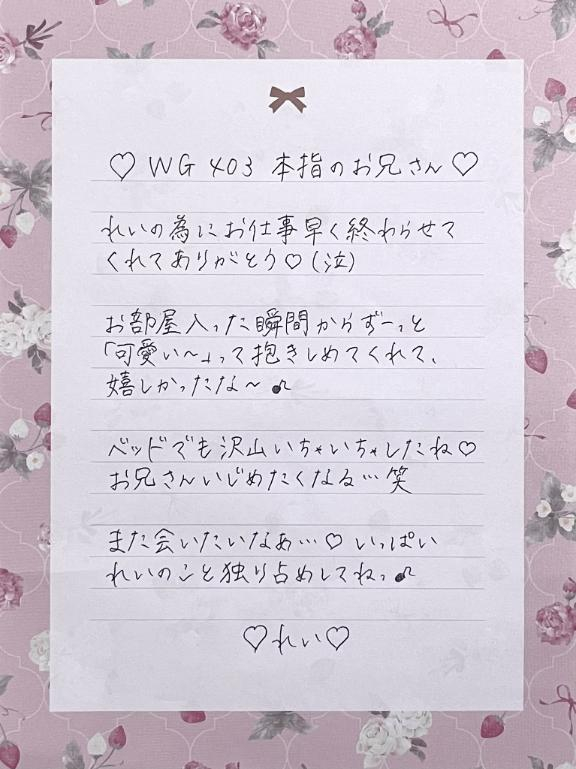 ♡ WG 403 本指のお兄さん ♡
れいの為にお仕事早く終わらせて
くれてありがとう♡(泣)
お部屋入った瞬間からずーっと
「可愛い〜」って抱きしめてくれて、
嬉しかったな〜♪
ベッドでも沢山いちゃいちゃしたね♡
お兄さんいじめたくなる…笑
また会いたいなぁ…♡いっぱい
れいのこと独り占めしてねっ♪
♡れい♡